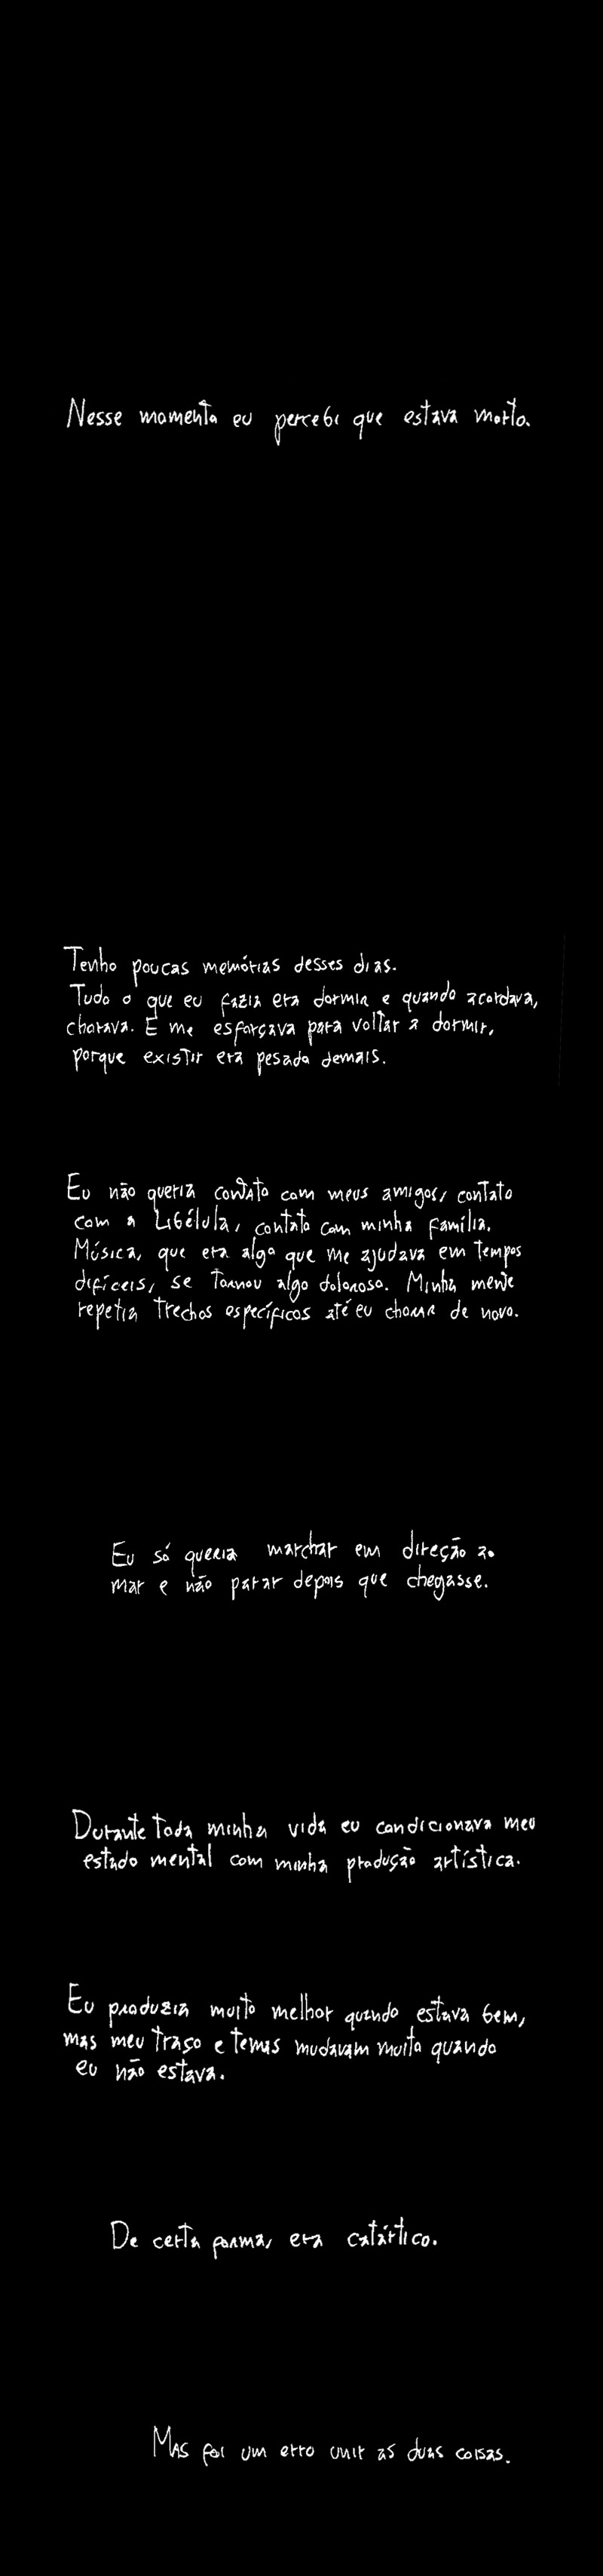 Nesse momento eu percebi que estava morto.
Tenho poucas memórias desses dias.
Tudo o que eu fazia era dormir e quando acordava,
chorava. E me esforçava para voltar a dormir,
porque existir era pesado demais.
Eu não queria contato com meus amigos, contato
com a Libélula, contato com minha família.
Música, que era algo que me ajudava em tempos
difíceis, se tornou algo doloroso. Minha mente
repetia trechos específicos até eu chorar de novo.
Eu só queria marchar em direção ao
mar e não parar depois que chegasse.
Durante toda minha vida eu condicionava meu
estado mental com minha produção artística.
Eu produzia muito melhor quando estava bem,
mas meu traço e temas mudavam muito quando
eu não estava.
De certa forma, era catártico.
Mas foi um erro unir as duas coisas.